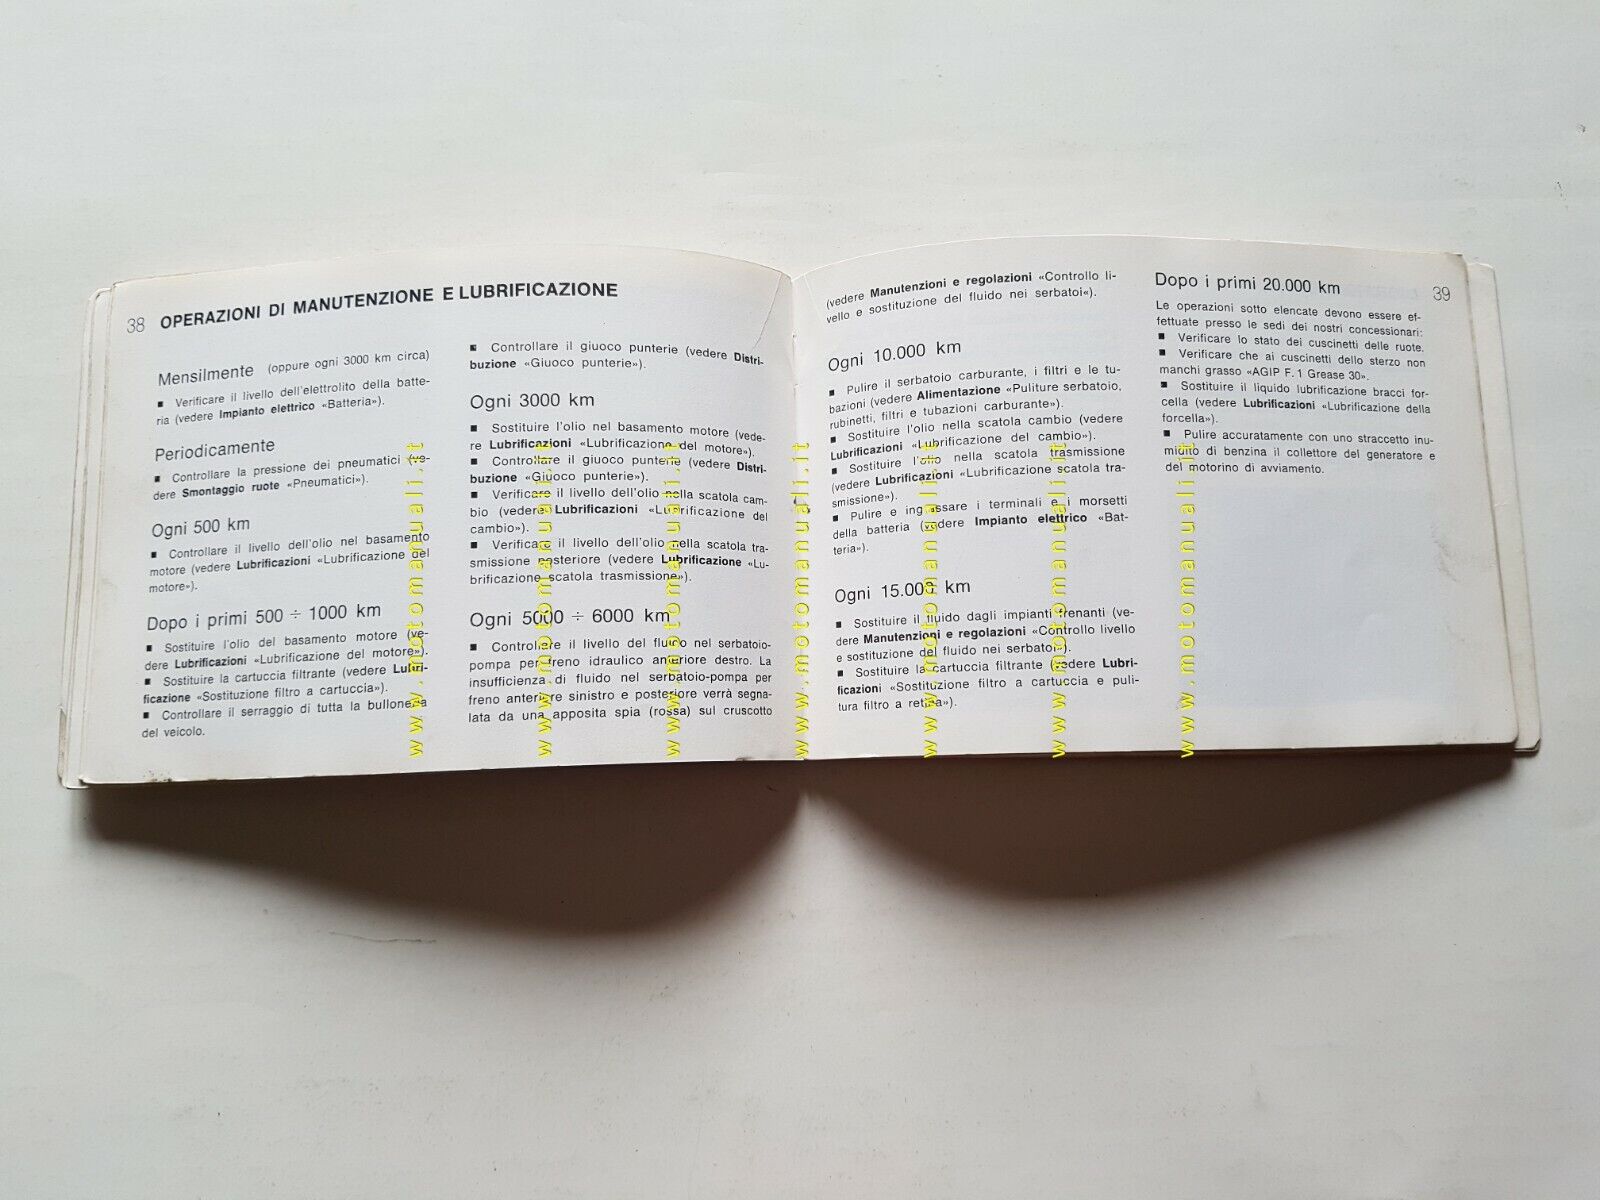 38 OPERAZIONI DI MANUTENZIONE E LUBRIFICAZIONE
Mensilmente (oppure ogni 3000 km circa)
■ Verificare il livello dell'elettrolito della batte-
ria (vedere Impianto elettrico «Batteria»).
Periodicamente
■ Controllare la pressione dei pneumatici (ve-
dere Smontaggio ruote «Pneumatici»).
Ogni 500 km
■ Controllare il livello dell'olio nel basamento
motore (vedere Lubrificazioni «Lubrificazione del
motore»).
Dopo i primi 500 ÷ 1000 km
■ Sostituire l'olio del basamento motore (ve-
dere Lubrificazioni «Lubrificazione del motore»).
■ Sostituire la cartuccia filtrante (vedere Lubri-
ficazione «Sostituzione filtro a cartuccia»).
■ Controllare il serraggio di tutta la bulloneria
del veicolo.
■ Controllare il giuoco punterie (vedere Distri-
buzione «Giuoco punterie»).
Ogni 3000 km
■ Sostituire l'olio nel basamento motore (vede-
re Lubrificazioni «Lubrificazione del motore»).
■ Controllare il giuoco punterie (vedere Distri-
buzione «Giuoco punterie»).
■ Verificare il livello dell'olio nella scatola cam-
bio (vedere Lubrificazioni «Lubrificazione del
cambio»).
■ Verificare il livello dell'olio nella scatola tra-
smissione posteriore (vedere Lubrificazione «Lu-
brificazione scatola trasmissione»).
Ogni 5000 ÷ 6000 km
■ Controllare il livello del fluido nel serbatoio-
pompa per freno idraulico anteriore destro. La
insufficienza di fluido nel serbatoio-pompa per
freno anteriore sinistro e posteriore verrà segna-
lata da una apposita spia (rossa) sul cruscotto
(vedere Manutenzioni e regolazioni «Controllo li-
vello e sostituzione del fluido nei serbatoi«).
Ogni 10.000 km
■ Pulire il serbatoio carburante, i filtri e le tu-
bazioni (vedere Alimentazione «Puliture serbatoio,
rubinetti, filtri e tubazioni carburante»).
■ Sostituire l'olio nella scatola cambio (vedere
Lubrificazioni «Lubrificazione del cambio»).
■ Sostituire l'olio nella scatola trasmissione
(vedere Lubrificazioni «Lubrificazione scatola tra-
smissione»).
■ Pulire e ingrassare i terminali e i morsetti
della batteria (vedere Impianto elettrico «Bat-
teria»).
Ogni 15.000 km
■ Sostituire il fluido dagli impianti frenanti (ve-
dere Manutenzioni e regolazioni «Controllo livello
e sostituzione del fluido nei serbatoi»).
■ Sostituire la cartuccia filtrante (vedere Lubri-
ficazioni «Sostituzione filtro a cartuccia e puli-
tura filtro a retina»).
Dopo i primi 20.000 km
39
Le operazioni sotto elencate devono essere ef-
fettuate presso le sedi dei nostri concessionari:
■ Verificare lo stato dei cuscinetti delle ruote.
■ Verificare che ai cuscinetti dello sterzo non
manchi grasso «AGIP F. 1 Grease 30».
■ Sostituire il liquido lubrificazione bracci for-
cella (vedere Lubrificazioni «Lubrificazione della
forcella»).
■ Pulire accuratamente con uno straccetto inu-
midito di benzina il collettore del generatore e
del motorino di avviamento.
www.motomanuali.it
www.motomanuali.it
www.motomanuali.it
www.motomanuali.it
www.motomanuali.it
www.motomanuali.it
www.motomanuali.it